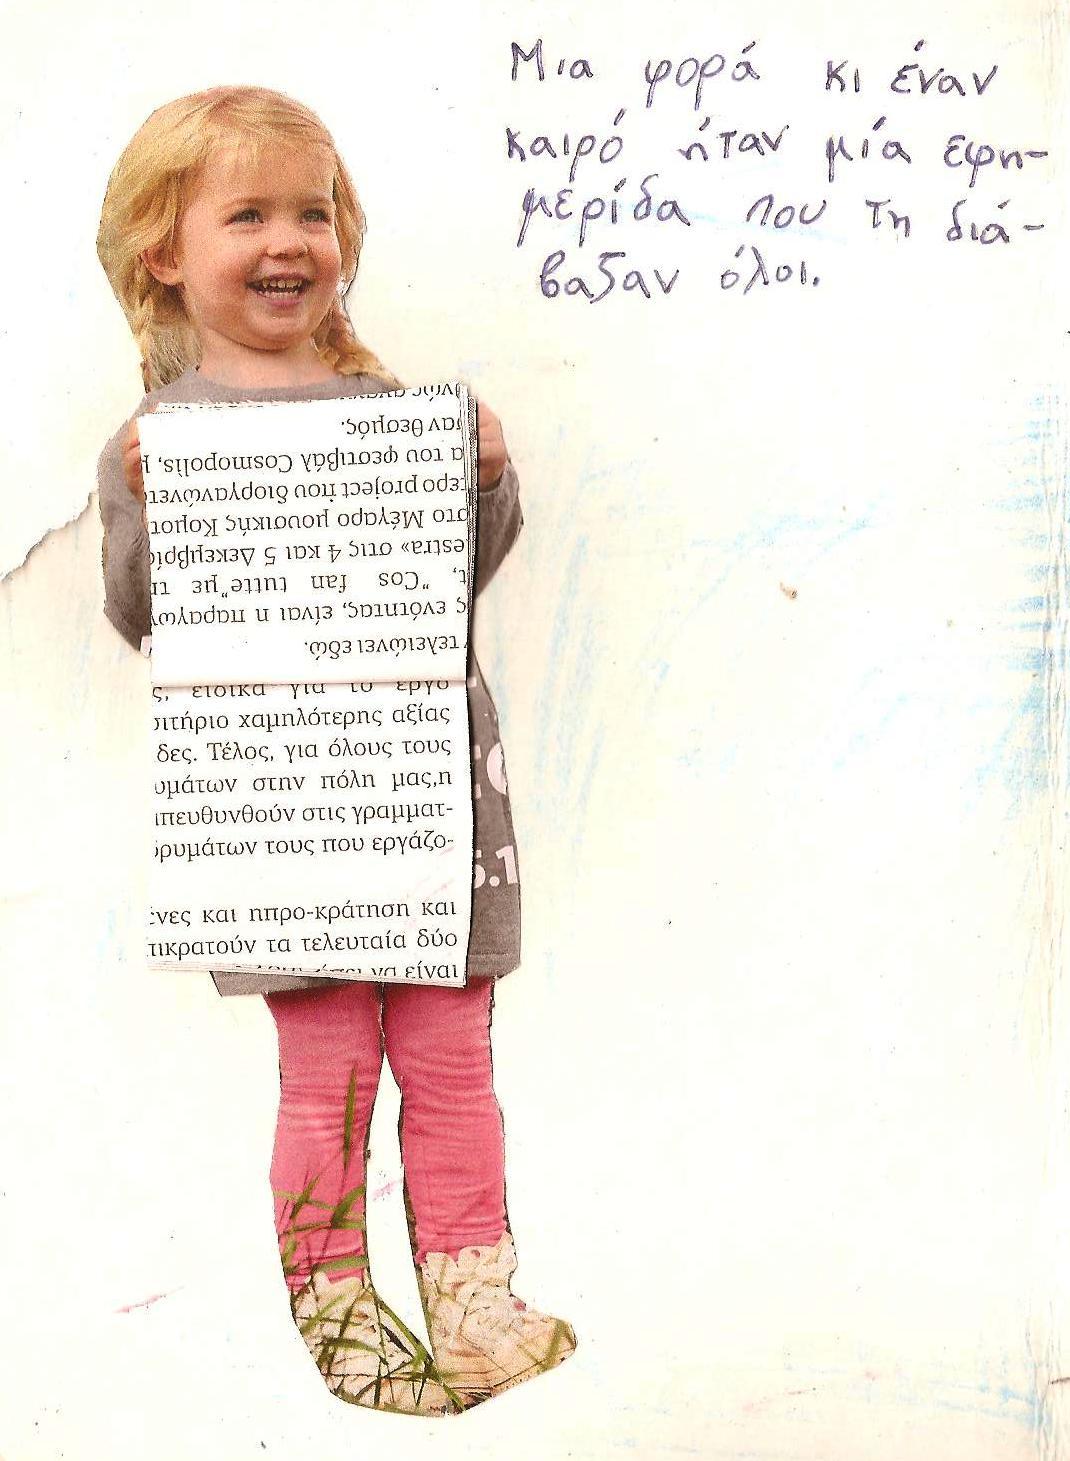 Μια φορά κι έναν
καιρό ήταν μία εφη-
μερίδα που τη διά-
βαζαν όλοι.
αν θεσμός.
α του φεστιβάλ Cosmopolis,
στο Μέγαρο μουσικής
estra» στις 4 και 5
"Cos fan tutte"με
ς ενότητας, είναι η
τελειώνει εδώ.
ς, ειδικά για το έργο
ιτήριο χαμηλότερης αξίας
δες. Τέλος, για όλους τους
υμάτων στην πόλη μας,η
πευθυνθούν στις γραμματ-
ρυμάτων τους που εργάζο-
ένες και ηπρο-κράτηση και
πικρατούν τα τελευταία δύο
να είναι
5.1